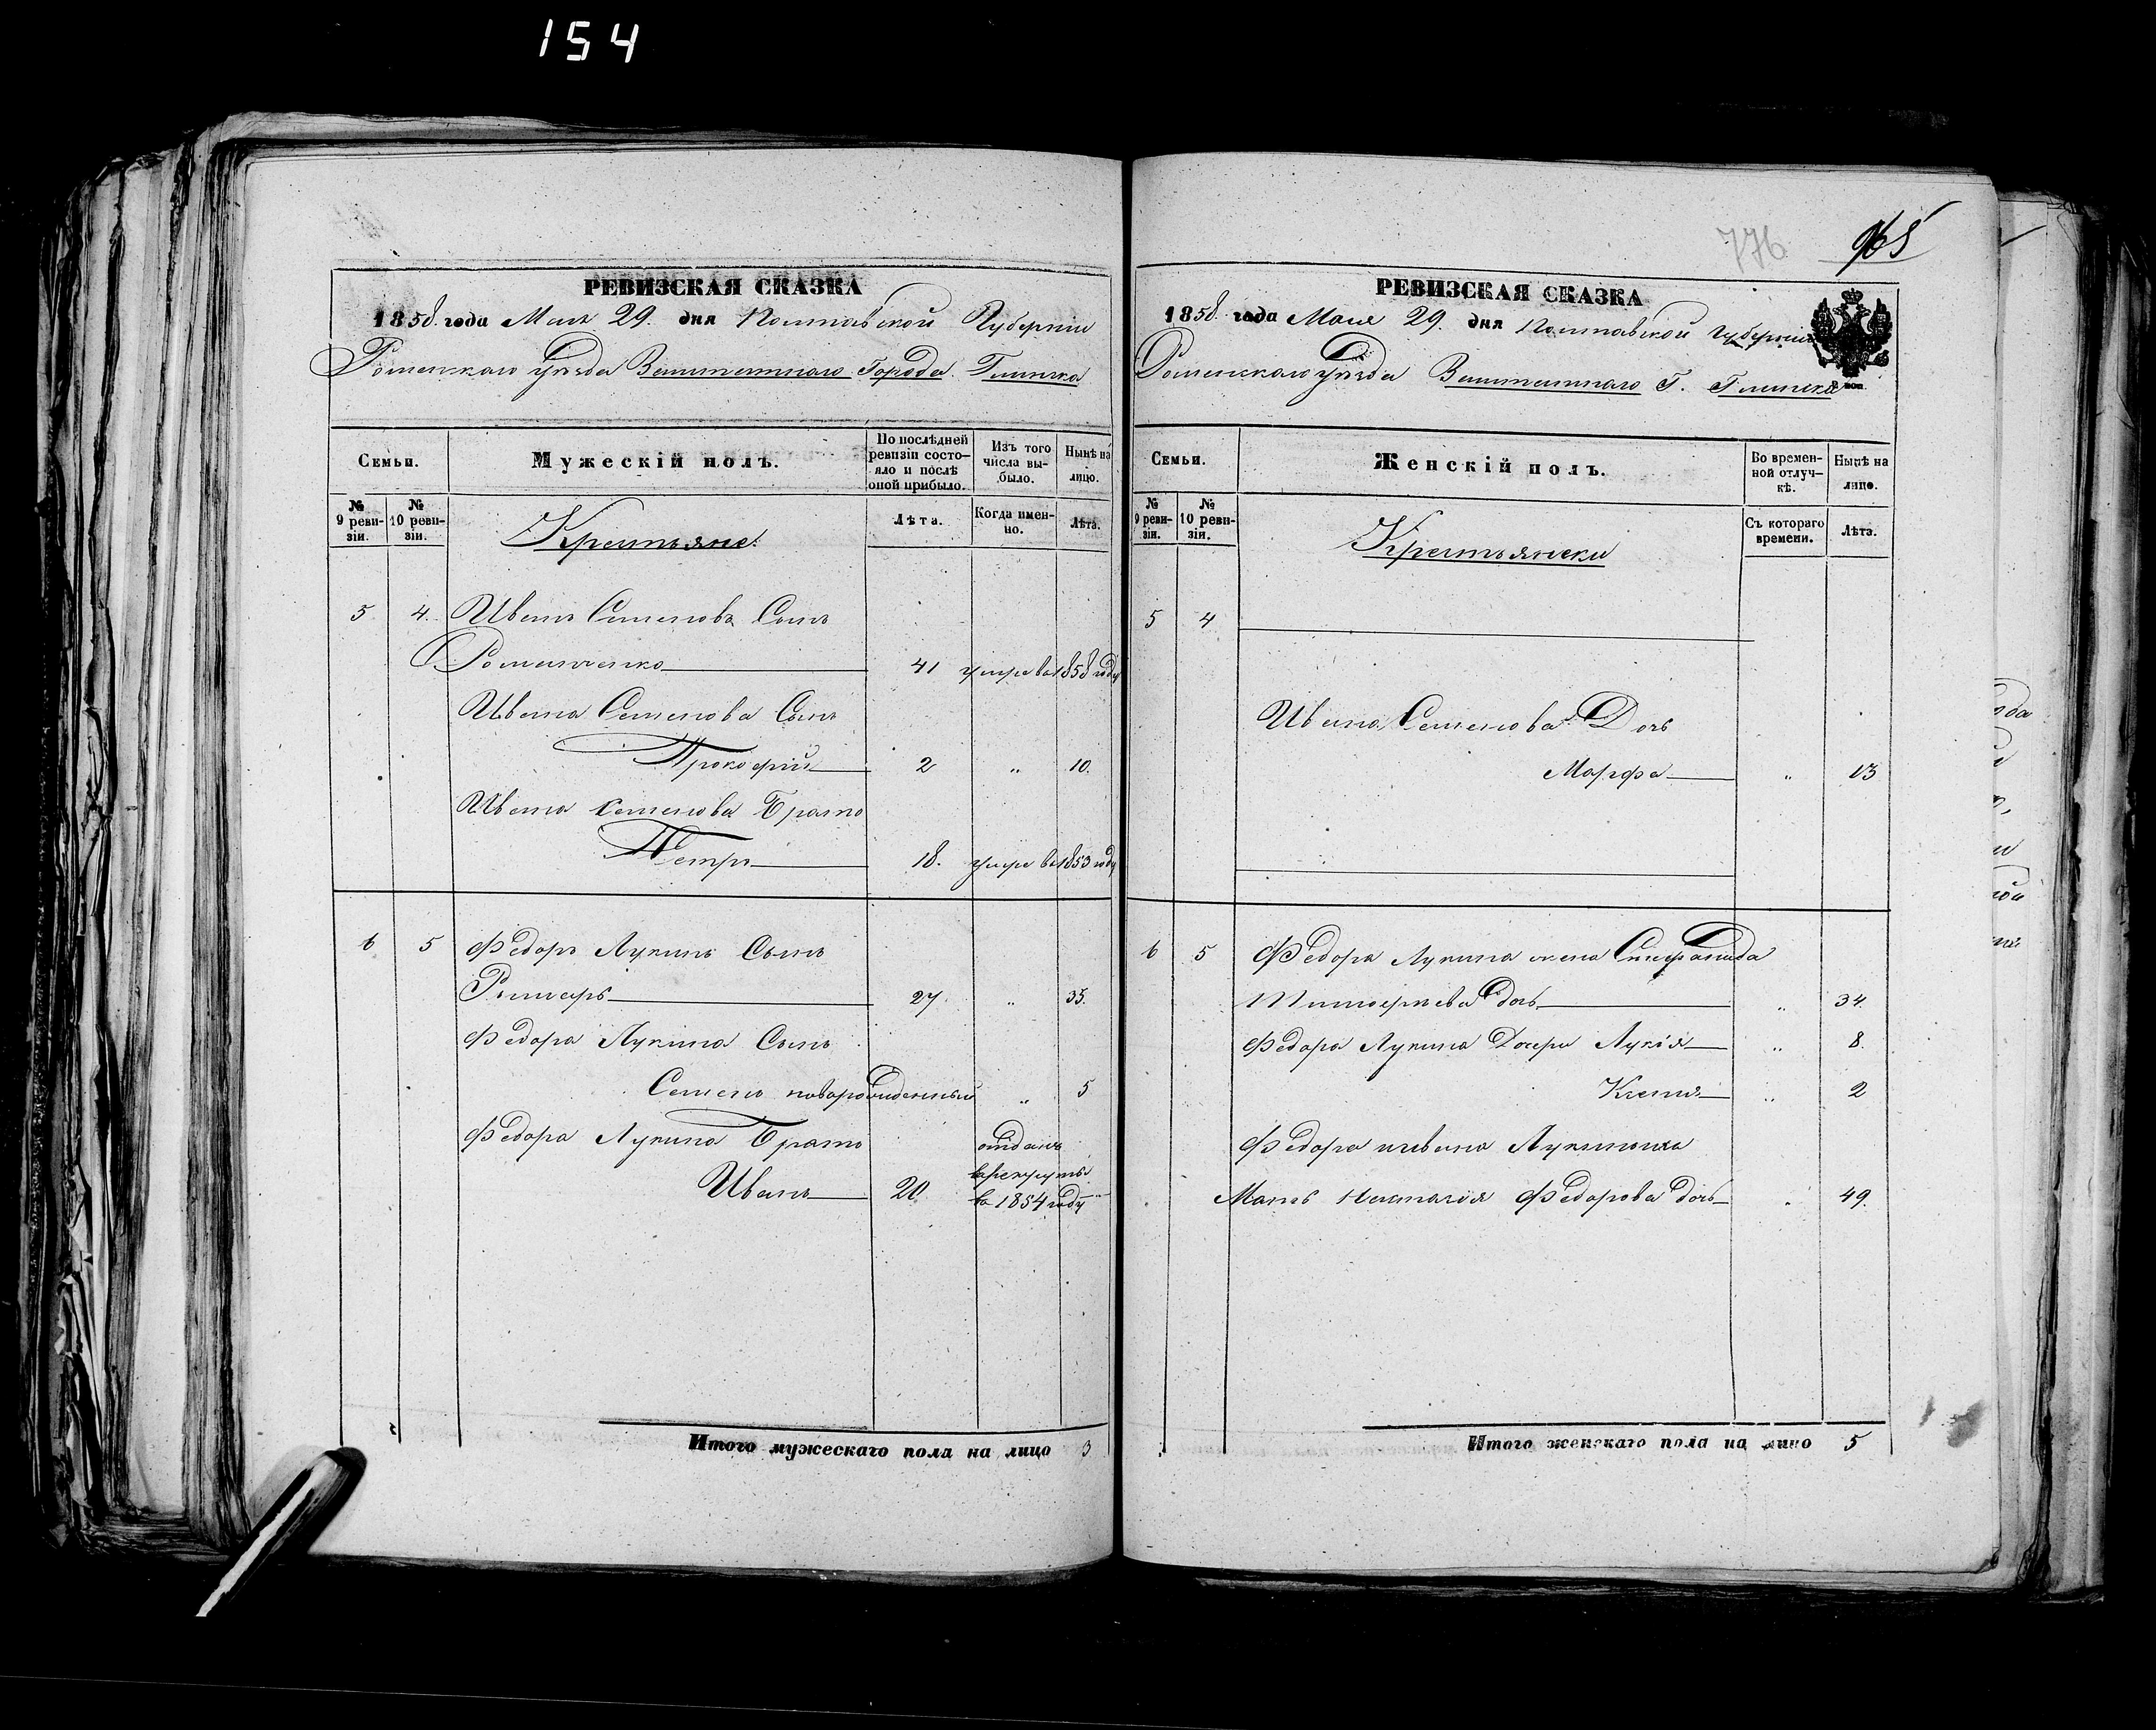 154
РЕВИЗСКАЯ СКАЗКА
1858. года Мая 29. дня Полтавской Губерніи
Роменскаго уѣзда Заштатнаго Города Глинска
Семьи.
Мужескій полъ.
По послѣдней ревизіи состояло и послѣ оной прибыло.
Изъ того числа выбыло.
Нынѣ на лицо.
№ 9 ревизіи.
№ 10 ревизіи.
Крестьяне
Лѣта.
Когда именно.
Лѣта.
5 4. Иванъ Семеновъ Сынъ
Романченко 41 умре въ 1858 году
Ивана Семенова Сынъ
Прокофій 2 " 10.
Ивана Семенова Братъ
Петръ 18. умре въ 1853 году
6 5 Федоръ Лукинъ Сынъ
27. " 35.
Федора Лукина Сынъ
Семенъ новорожденный " 5
Федора Лукина Братъ отданъ
Иванъ 20. в рекруты
въ 1854 году
Итого мужескаго пола на лицо 3
776
965
РЕВИЗСКАЯ СКАЗКА
1858. года Мая 29. дня Полтавской Губерніи
Роменскаго уѣзда Заштатнаго Г. Глинска
Семьи.
Женскій полъ.
Во временной отлучкѣ.
Нынѣ на лицо.
№ 9 ревизіи.
№ 10 ревизіи.
Крестьянски
Съ котораго времени.
Лѣта.
5 4
Ивана Семенова Дочь
Марфа " 13
6 5 Федора Лукина жена Степанида
Тимофиева дочь " 34.
Федора Лукина Дочери Лукія " 8.
Ксенія " 2
Федора и Ивана Лукиныхъ
Мать Наталія Федорова дочь " 49.
Итого женскаго пола на лицо 5